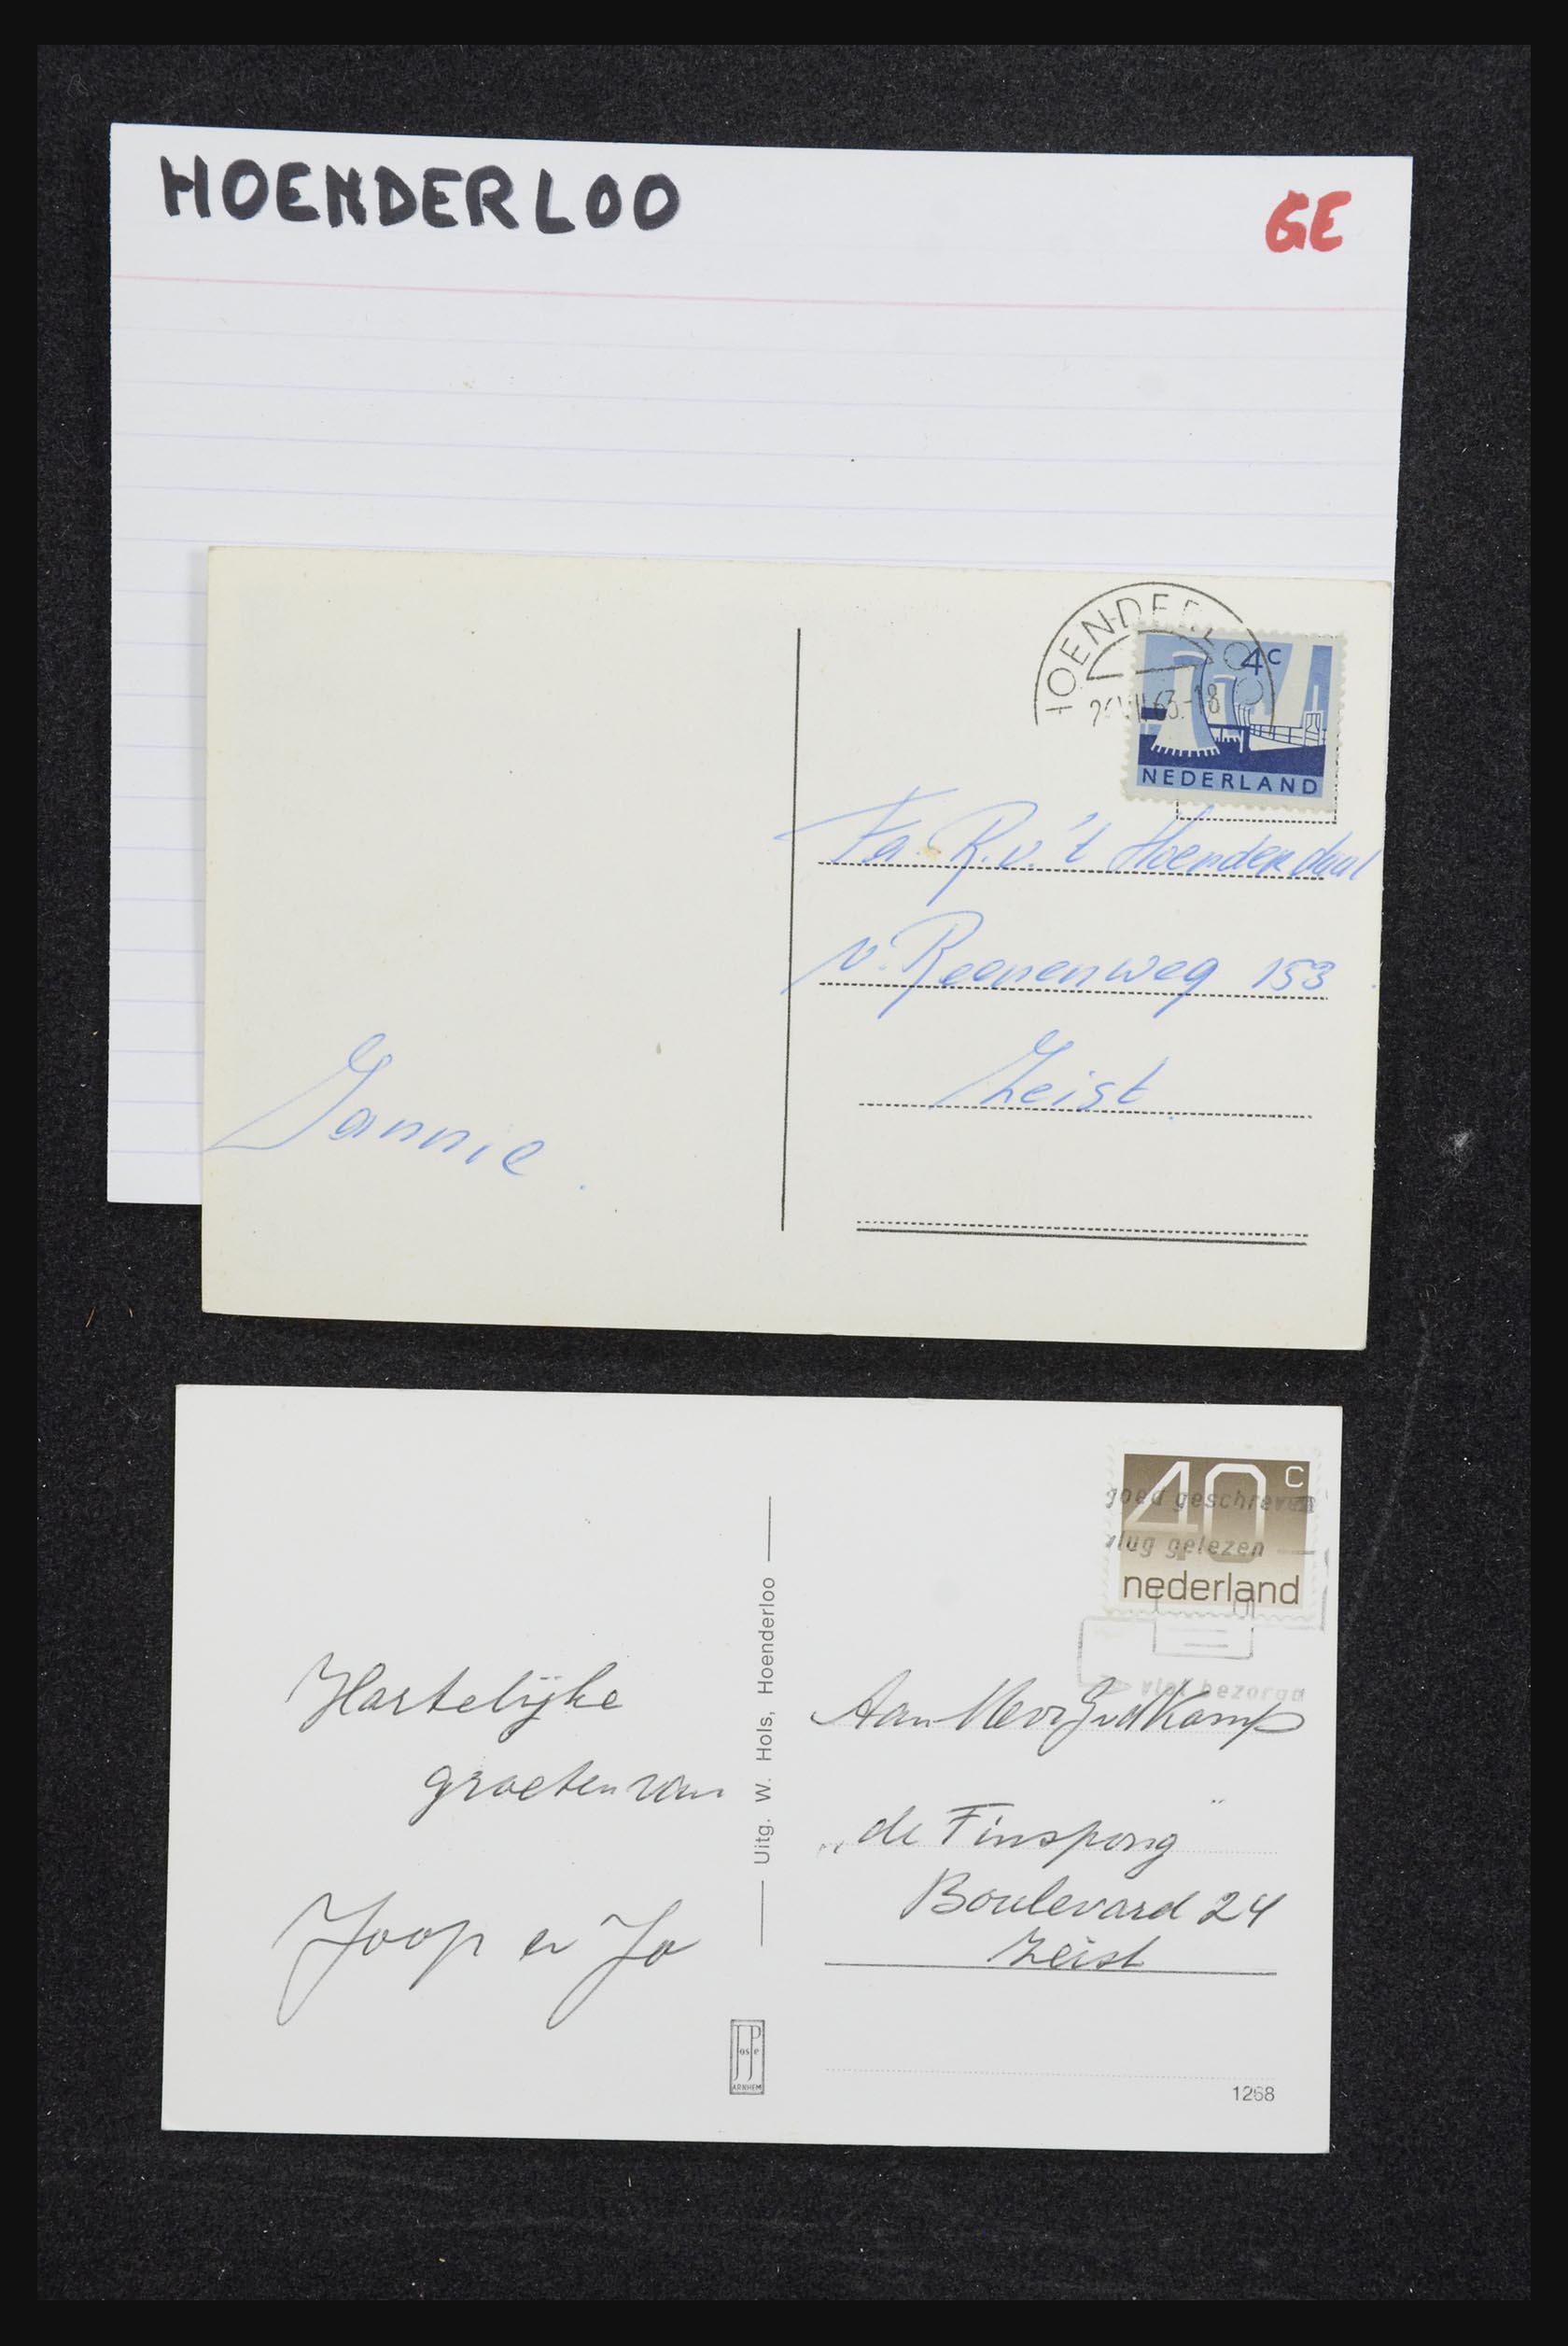 HOENDERLOO
GE
HOENDERLOO
63.-18
4c
NEDERLAND
Fa. R. v. 't Hoenderdaal
v. Reenenweg 153
Zeist
Jannie.
40 c
goed geschreven
vlug gelezen
nederland
vlot bezorgd
Hartelijke
groeten van
Joop en Jo
Uitg. W. Hols, Hoenderloo
Aan Mevr
"de Finspong"
Boulevard 24
Zeist
JosPe
ARNHEM
1268